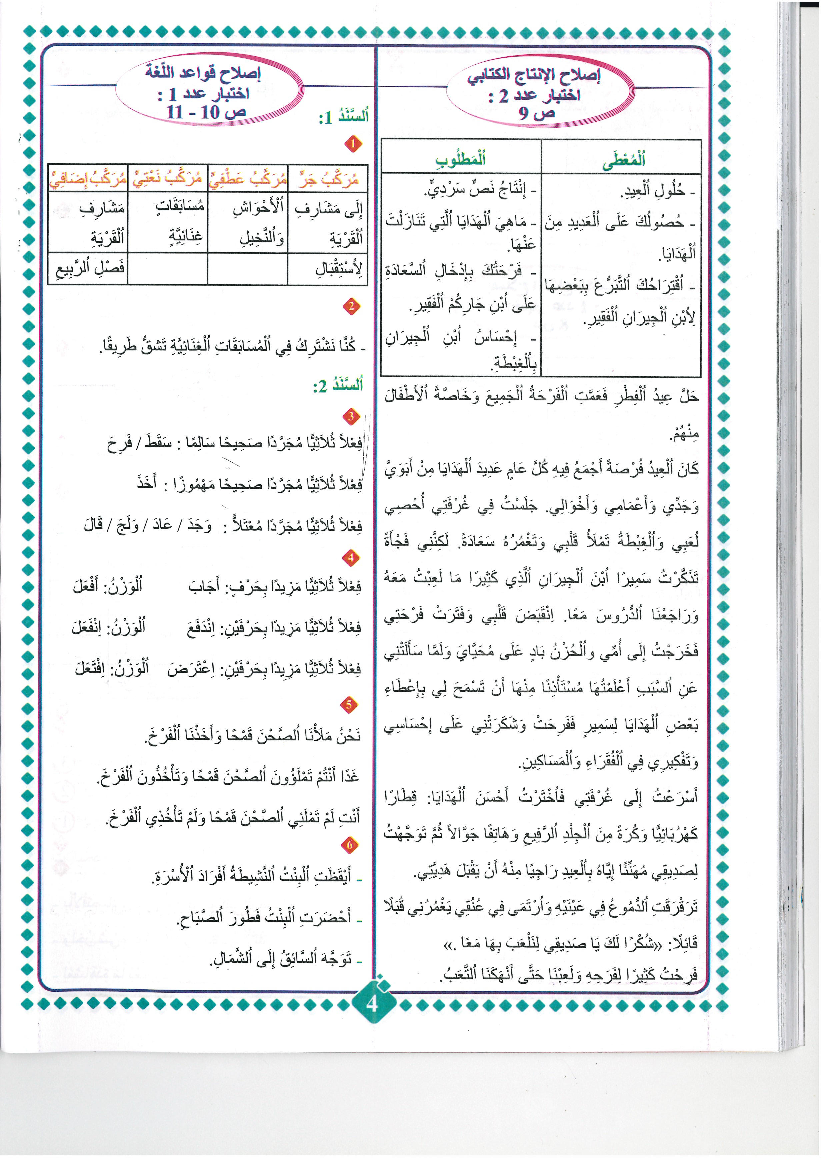 إصلاح الإنتاج الكتابي
اختبار عدد 2 :
ص 9
اَلْمُعْطَى
اَلْمَطْلُوبِ
- حُلُولِ الْعِيدِ.
- حُصُولُكَ عَلَى الْعَدِيدِ مِنَ
الْهَدَايَا.
- اُقْتِرَاحُكَ التَّبَرُّعَ بِبَعْضِهَا
لِأَبْنِ الْجِيرَانِ الْفَقِيرِ.
- إِنْتَاجُ نَصٍّ سَرْدِيٍّ.
- مَاهِيَ الْهَدَايَا الَّتِي تَنَازَلْتَ
عَنْهَا.
- فَرْحَتُكَ بِإِدْخَالِ السَّعَادَةِ
عَلَى أَبْنِ جَارِكُمْ الْفَقِيرِ.
- إِحْسَاسُ أَبْنِ الْجِيرَانِ
بِالْغِبْطَةِ.
حَلَّ عِيدُ الْفِطْرِ فَعَمَّتِ الْفَرْحَةُ الْجَمِيعَ وَخَاصَّةً الْأَطْفَالَ
مِنْهُمْ.
كَانَ الْعِيدُ فُرْصَةً أَجْمَعُ فِيهِ كُلَّ عَامٍ عَدِيدَ الْهَدَايَا مِنْ أَبَوَيَّ
وَجَدِّي وَأَعْمَامِي وَأَخْوَالِي. جَلَسْتُ فِي غُرْفَتِي أُحْصِي
لُعَبِي وَالْغِبْطَةُ تَمْلَأُ قَلْبِي وَتَغْمُرُهُ سَعَادَةً. لَكِنَّنِي فَجْأَةً
تَذَكَّرْتُ سَمِيرًا أَبْنَ الْجِيرَانِ الَّذِي كَثِيرًا مَا لَعِبْتُ مَعَهُ
وَرَاجَعْنَا الدُّرُوسَ مَعًا. اِنْقَبَضَ قَلْبِي وَفَتَرَتْ فَرْحَتِي
فَخَرَجْتُ إِلَى أُمِّي والْحُزْنُ بَادٍ عَلَى مُحَيَّايَ وَلَمَّا سَأَلَتْنِي
عَنِ السَّبَبِ أَعْلَمْتُهَا مُسْتَأْذِنًا مِنْهَا أَنْ تَسْمَحَ لِي بِإِعْطَاءِ
بَعْضِ الْهَدَايَا لِسَمِيرٍ فَفَرِحَتْ وَشَكَرَتْنِي عَلَى إِحْسَاسِي
وَتَفْكِيرِي فِي الْفُقَرَاءِ وَالْمَسَاكِينِ.
أَسْرَعْتُ إِلَى غُرْفَتِي فَأَخْتَرْتُ أَحْسَنَ الْهَدَايَا: قِطَارًا
كَهْرُبَائِيًّا وَكُرَةً مِنَ الْجِلْدِ الرَّفِيعِ وَهَاتِفًا جَوَّالاً ثُمَّ تَوَجَّهْتُ
لِصَدِيقِي مُهَنِّئًا إِيَّاهُ بِالْعِيدِ رَاجِيًا مِنْهُ أَنْ يَقْبَلَ هَدِيَّتِي.
تَرَقْرَقَتِ الدُّمُوعُ فِي عَيْنَيْهِ وَأَرْتَمَى فِي عُنُقِي يَغْمُرُنِي قُبَلًا
قَائِلًا: «شُكْرًا لَكَ يَا صَدِيقِي لِنَلْعَبَ بِهَا مَعًا .»
فَرِحْتُ كَثِيرًا لِفَرَحِهِ وَلَعِبْنَا حَتَّى أَنْهَكَنَا التَّعَبُ.
إصلاح قواعد اللّغة
اختبار عدد 1 :
ص 10 - 11
اَلسَّنَدُ 1:
1
مُرَكَّبُ جَرٍّ
مُرَكَّبُ عَطْفِيٌّ
مُرَكَّبُ نَعْتِيٌّ
مُرَكَّبُ إِضَافِيٌّ
إِلَى مَشَارِفِ الْقَرْيَةِ
الْأَحْوَاشِ وَالنَّخِيلِ
مُسَابَقَاتٍ غِنَائِيَّةٍ
مَشَارِفِ الْقَرْيَةِ
لِأسْتِقْبَالِ
فَصْلِ الرَّبِيعِ
2
- كُنَّا نَشْتَرِكُ فِي الْمُسَابَقَاتِ الْغِنَائِيَّةِ تَشُقُّ طَرِيقًا.
اَلسَّنَدُ 2:
3
فِعْلاً ثُلَاثِيًّا مُجَرَّدًا صَحِيحًا سَالِمًا : سَقَطَ / فَرِحَ
فِعْلاً ثُلَاثِيًّا مُجَرَّدًا صَحِيحًا مَهْمُوزًا : أَخَذَ
فِعْلاً ثُلَاثِيًّا مُجَرَّدًا مُعْتَلاًّ : وَجَدَ / عَادَ / وَلَجَ / قَالَ
4
فِعْلاً ثُلَاثِيًّا مَزِيدًا بِحَرْفٍ: أَجَابَ الْوَزْنُ: أَفْعَلَ
فِعْلاً ثُلَاثِيًّا مَزِيدًا بِحَرْفَيْنِ: إِنْدَفَعَ الْوَزْنُ: إِنْفَعَلَ
فِعْلاً ثُلَاثِيًّا مَزِيدًا بِحَرْفَيْنِ: إِعْتَرَضَ الْوَزْنُ: إِفْتَعَلَ
5
نَحْنُ مَلَأْنَا الصَّحْنَ قَمْحًا وَأَخَذْنَا الْفَرْخَ.
غَدًا أَنْتُمْ تَمْلَؤُونَ الصَّحْنَ قَمْحًا وَتَأْخُذُونَ الْفَرْخَ.
أَنْتِ لَمْ تَمْلَئِي الصَّحْنَ قَمْحًا وَلَمْ تَأْخُذِي الْفَرْخَ.
6
- أَيْقَظَتِ الْبِنْتُ النَّشِيطَةُ أَفْرَادَ الْأُسْرَةِ.
- أَحْضَرَتِ الْبِنْتُ فَطُورَ الصَّبَاحِ.
- تَوَجَّهَ السَّائِقُ إِلَى الشَّمَالِ.
4